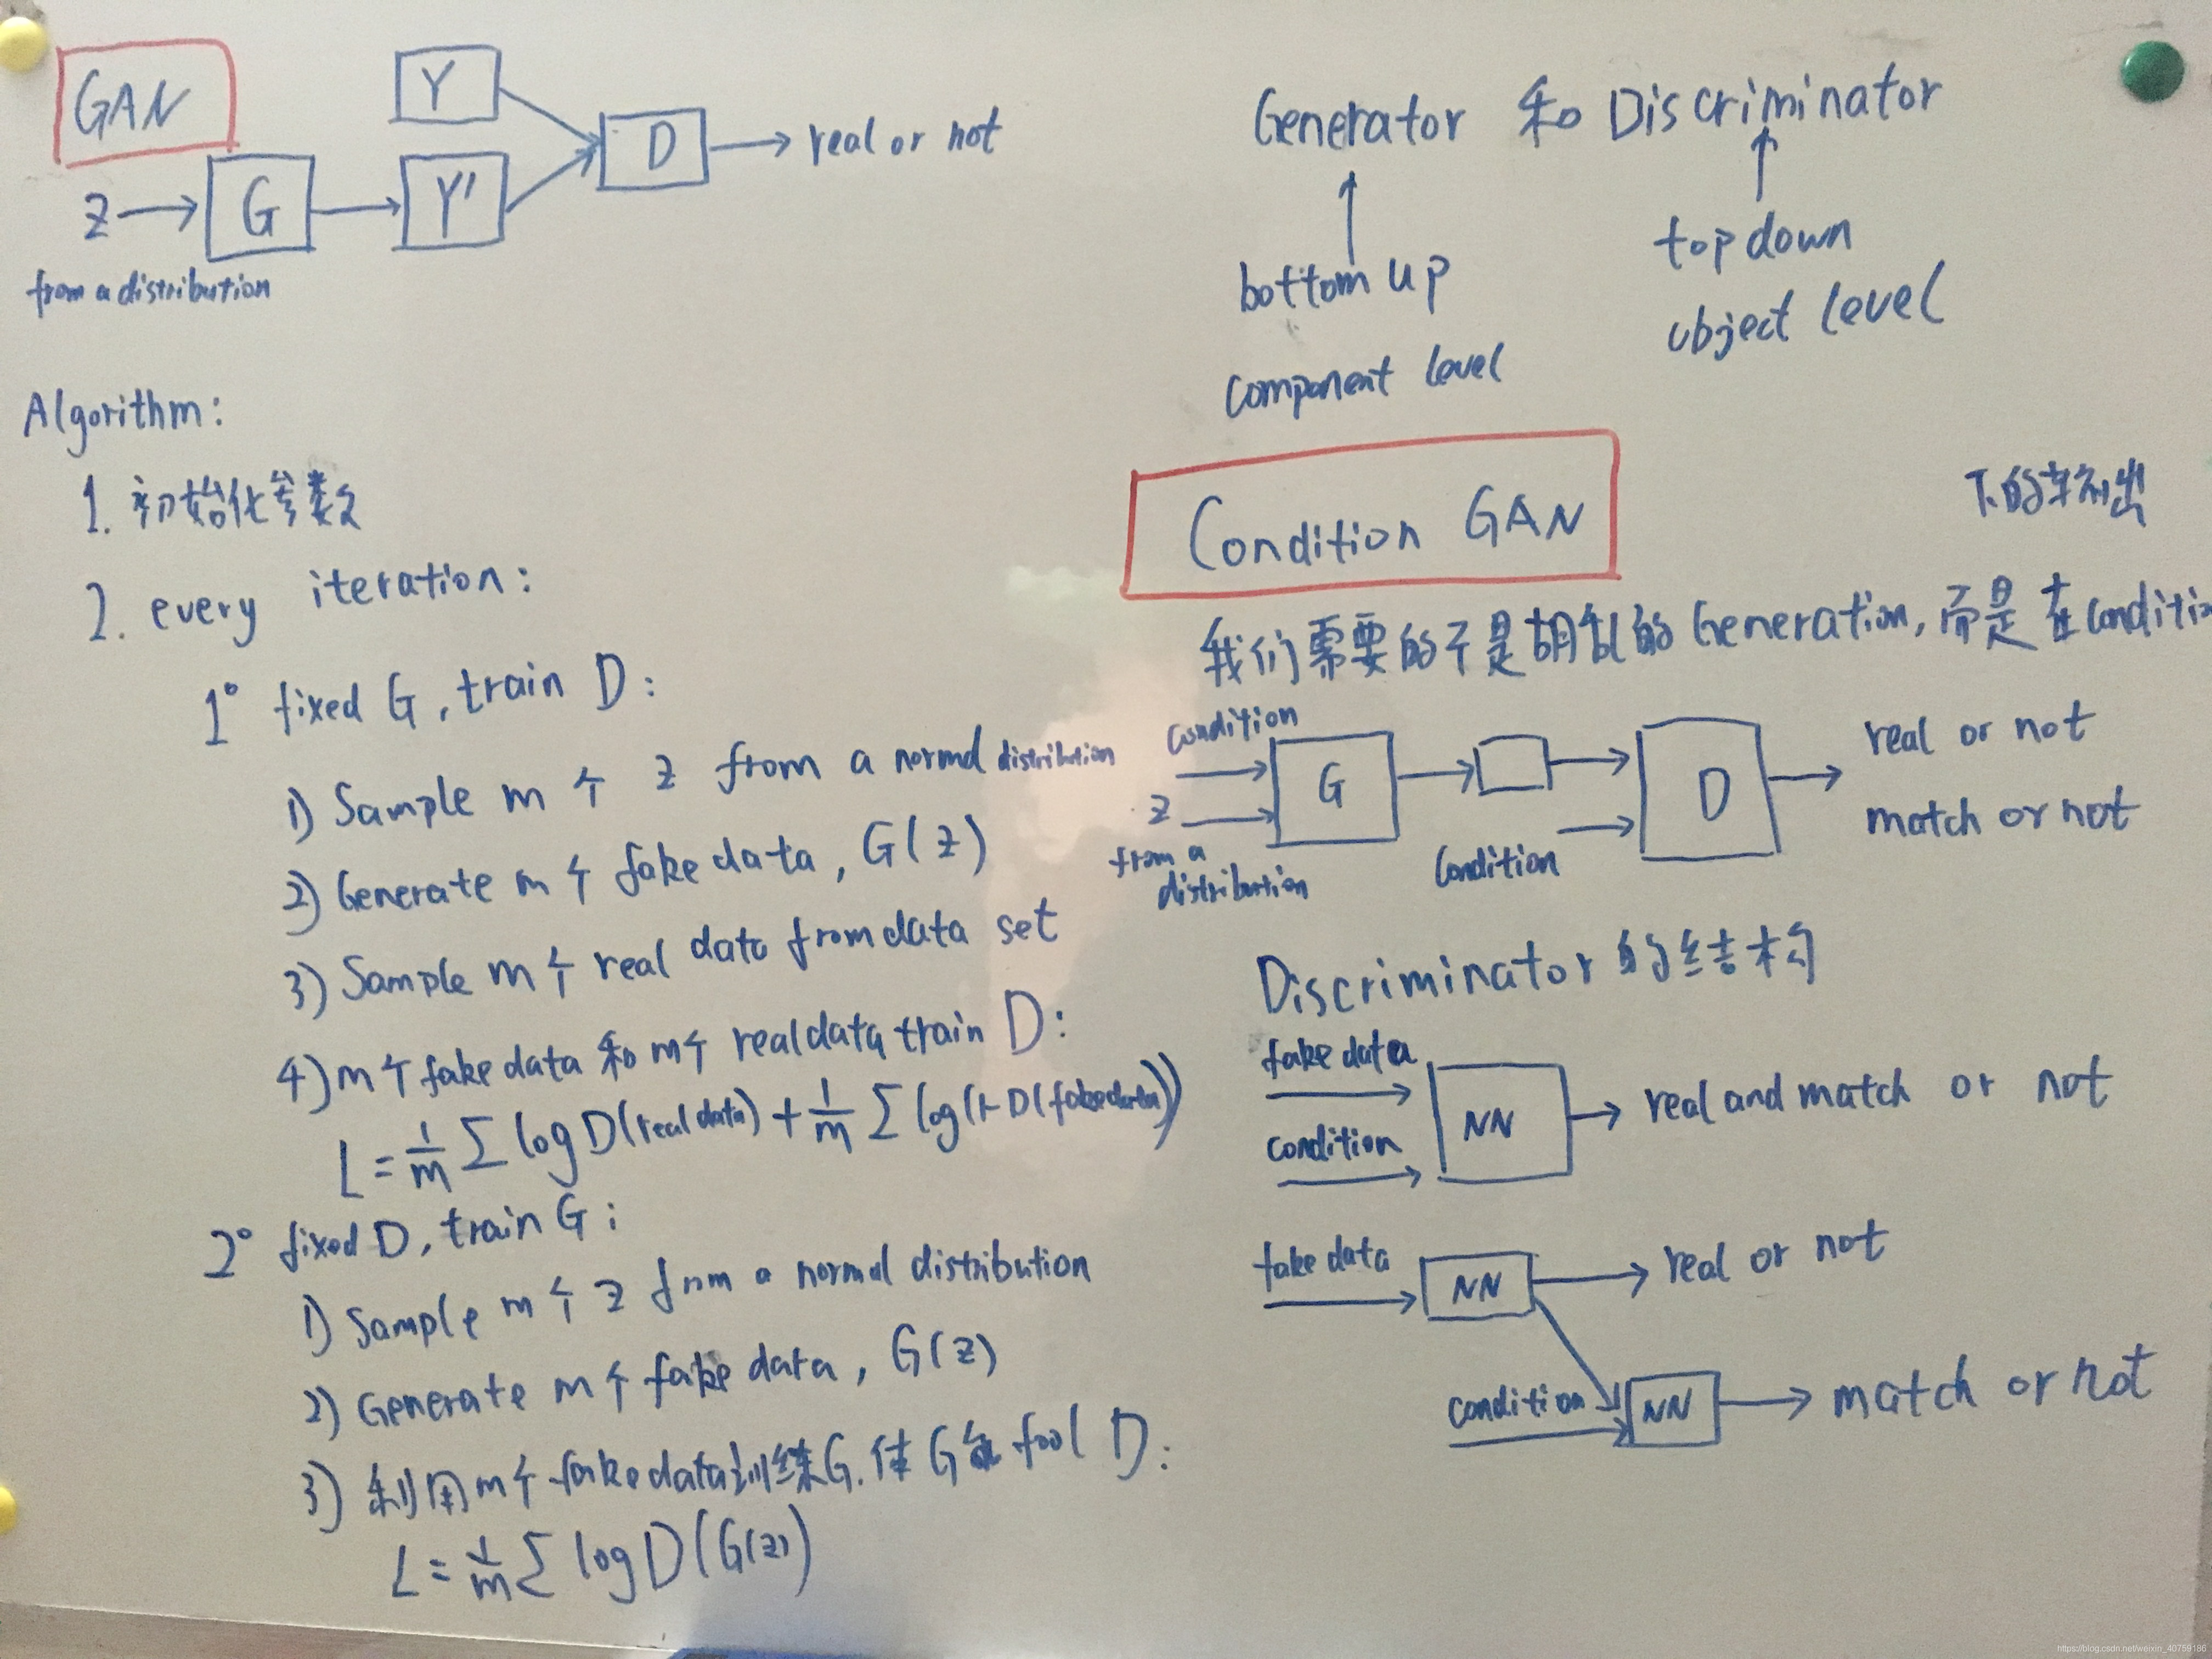 GAN
Y
D
real or not
z
G
Y'
from a distribution
Algorithm:
1. 初始化参数
2. every iteration:
1° fixed G, train D:
1) Sample m个 z from a normal distribution
2) Generate m个 fake data, G(z)
3) Sample m个 real data from data set
4) m个 fake data 和 m个 real data train D:
L = 1/m ∑ log D(real data) + 1/m ∑ log(1-D(fake data))
2° fixed D, train G:
1) Sample m个 z from a normal distribution
2) Generate m个 fake data, G(z)
3) 利用m个 fake data训练G,使G能 fool D:
L = 1/m ∑ log D(G(z))
Generator 和 Discriminator
bottom up
component level
top down
object level
Condition GAN
下的输出
我们需要的不是胡乱的Generation, 而是在conditio
condition
z
from a
distribution
G
condition
D
real or not
match or not
Discriminator 的结构
fake data
condition
NN
real and match or not
fake data
NN
real or not
condition
NN
match or not
https://blog.csdn.net/weixin_40759186